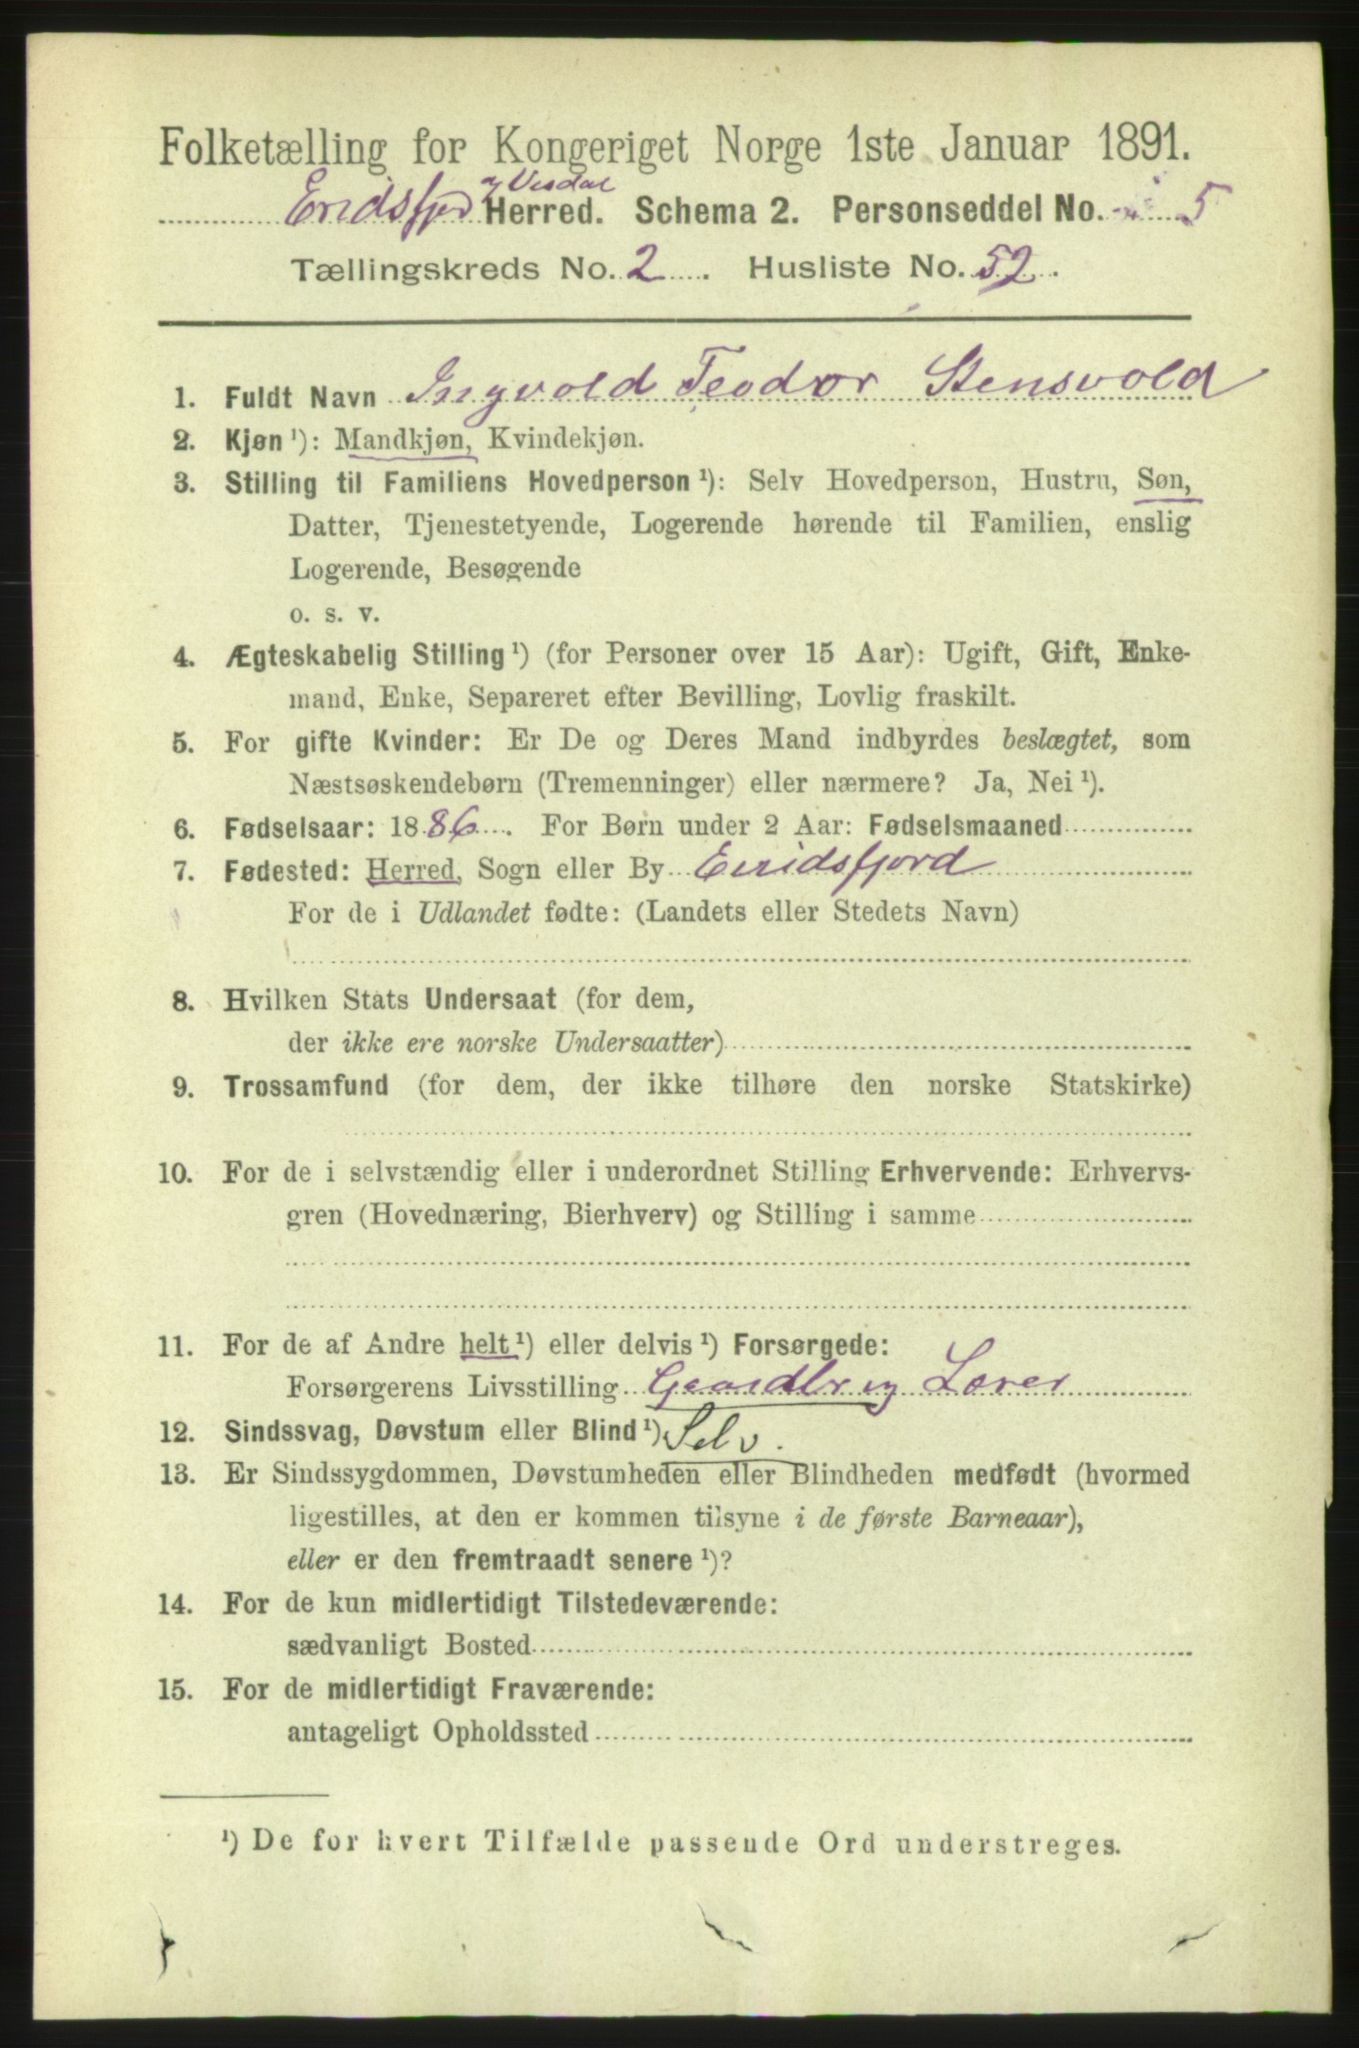 Folketælling for Kongeriget Norge 1ste Januar 1891.
Eridsfjord og Vesdal Herred. Schema 2. Personseddel No. 5
Tællingskreds No. 2. Husliste No. 52.
1. Fuldt Navn Ingvold Teodor Stensvold
2. Kjøn ¹): Mandkjøn, Kvindekjøn.
3. Stilling til Familiens Hovedperson ¹): Selv Hovedperson, Hustru, Søn,
Datter, Tjenestetyende, Logerende hørende til Familien, enslig
Logerende, Besøgende
o. s. v.
4. Ægteskabelig Stilling ¹) (for Personer over 15 Aar): Ugift, Gift, Enke-
mand, Enke, Separeret efter Bevilling, Lovlig fraskilt.
5. For gifte Kvinder: Er De og Deres Mand indbyrdes beslægtet, som
Næstsøskendebørn (Tremenninger) eller nærmere? Ja, Nei ¹).
6. Fødselsaar: 1886. For Børn under 2 Aar: Fødselsmaaned
7. Fødested: Herred, Sogn eller By Eridsfjord
For de i Udlandet fødte: (Landets eller Stedets Navn)
8. Hvilken Stats Undersaat (for dem,
der ikke ere norske Undersaatter)
9. Trossamfund (for dem, der ikke tilhøre den norske Statskirke)
10. For de i selvstændig eller i underordnet Stilling Erhvervende: Erhvervs-
gren (Hovednæring, Bierhverv) og Stilling i samme
11. For de af Andre helt ¹) eller delvis ¹) Forsørgede:
Forsørgerens Livsstilling Gaardbr og Lærer
12. Sindssvag, Døvstum eller Blind ¹) Selv.
13. Er Sindssygdommen, Døvstumheden eller Blindheden medfødt (hvormed
ligestilles, at den er kommen tilsyne i de første Barneaar),
eller er den fremtraadt senere ¹)?
14. For de kun midlertidigt Tilstedeværende:
sædvanligt Bosted
15. For de midlertidigt Fraværende:
antageligt Opholdssted
¹) De for hvert Tilfælde passende Ord understreges.